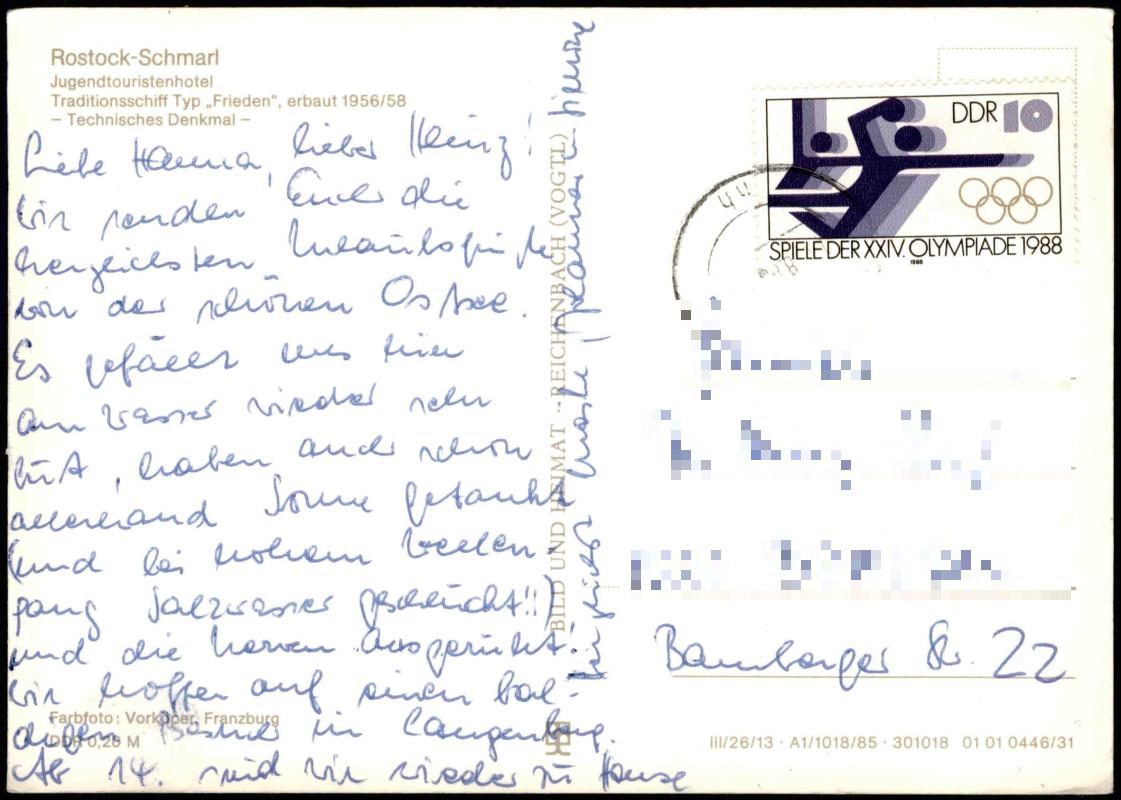 Rostock-Schmarl
Jugendtouristenhotel
Traditionsschiff Typ „Frieden“, erbaut 1956/58
– Technisches Denkmal –
Liebe Hanna, lieber Heinz!
Wir senden Euch die
herzlichsten Urlaubsgrüße
von der schönen Ostsee.
Es gefällt uns hier
am Wasser wieder sehr
gut, haben auch schon
allerhand Sonne getankt
(und bei hohem Wellen-
gang Salzwasser geschluckt!!)
und die Nerven ausgeruht.
Wir hoffen auf einen bal-
digen Besuch in Langenberg.
Ab 14. sind wir wieder zu Hause
Farbfoto: Vorköper, Franzburg
DDR 0,25 M
BILD UND HEIMAT · REICHENBACH (VOGTL)
Herzlichst
DDR 10
SPIELE DER XXIV. OLYMPIADE 1988
1988
Bamberger Str. 22
III/26/13 · A1/1018/85 · 301018 01 01 0446/31